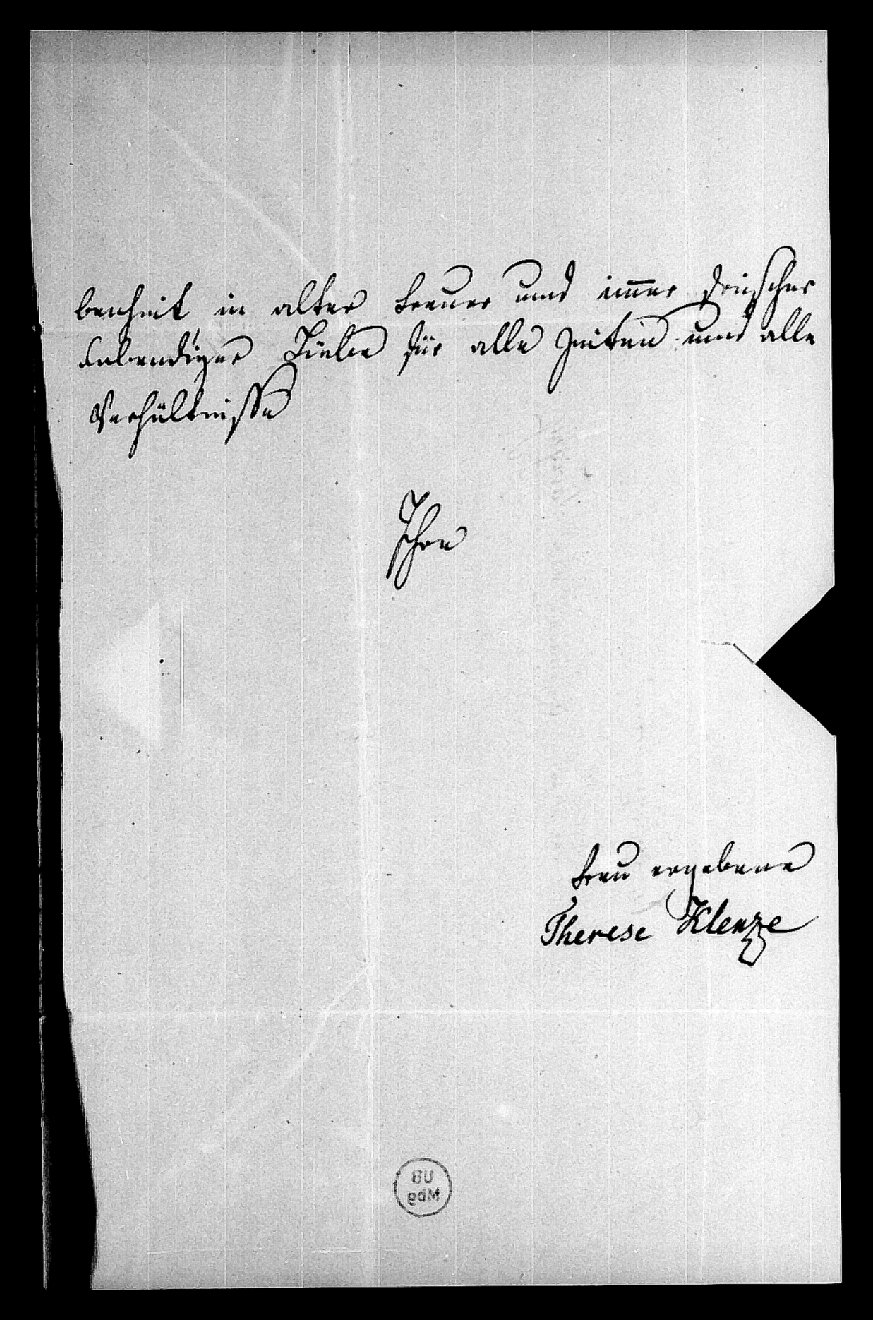 benheit in alter treuer und immer frischer
lebendiger Liebe für alle Zeiten und alle
Verhältnisse
Ihre
treu ergebene
Therese Klenze
UB
gdM